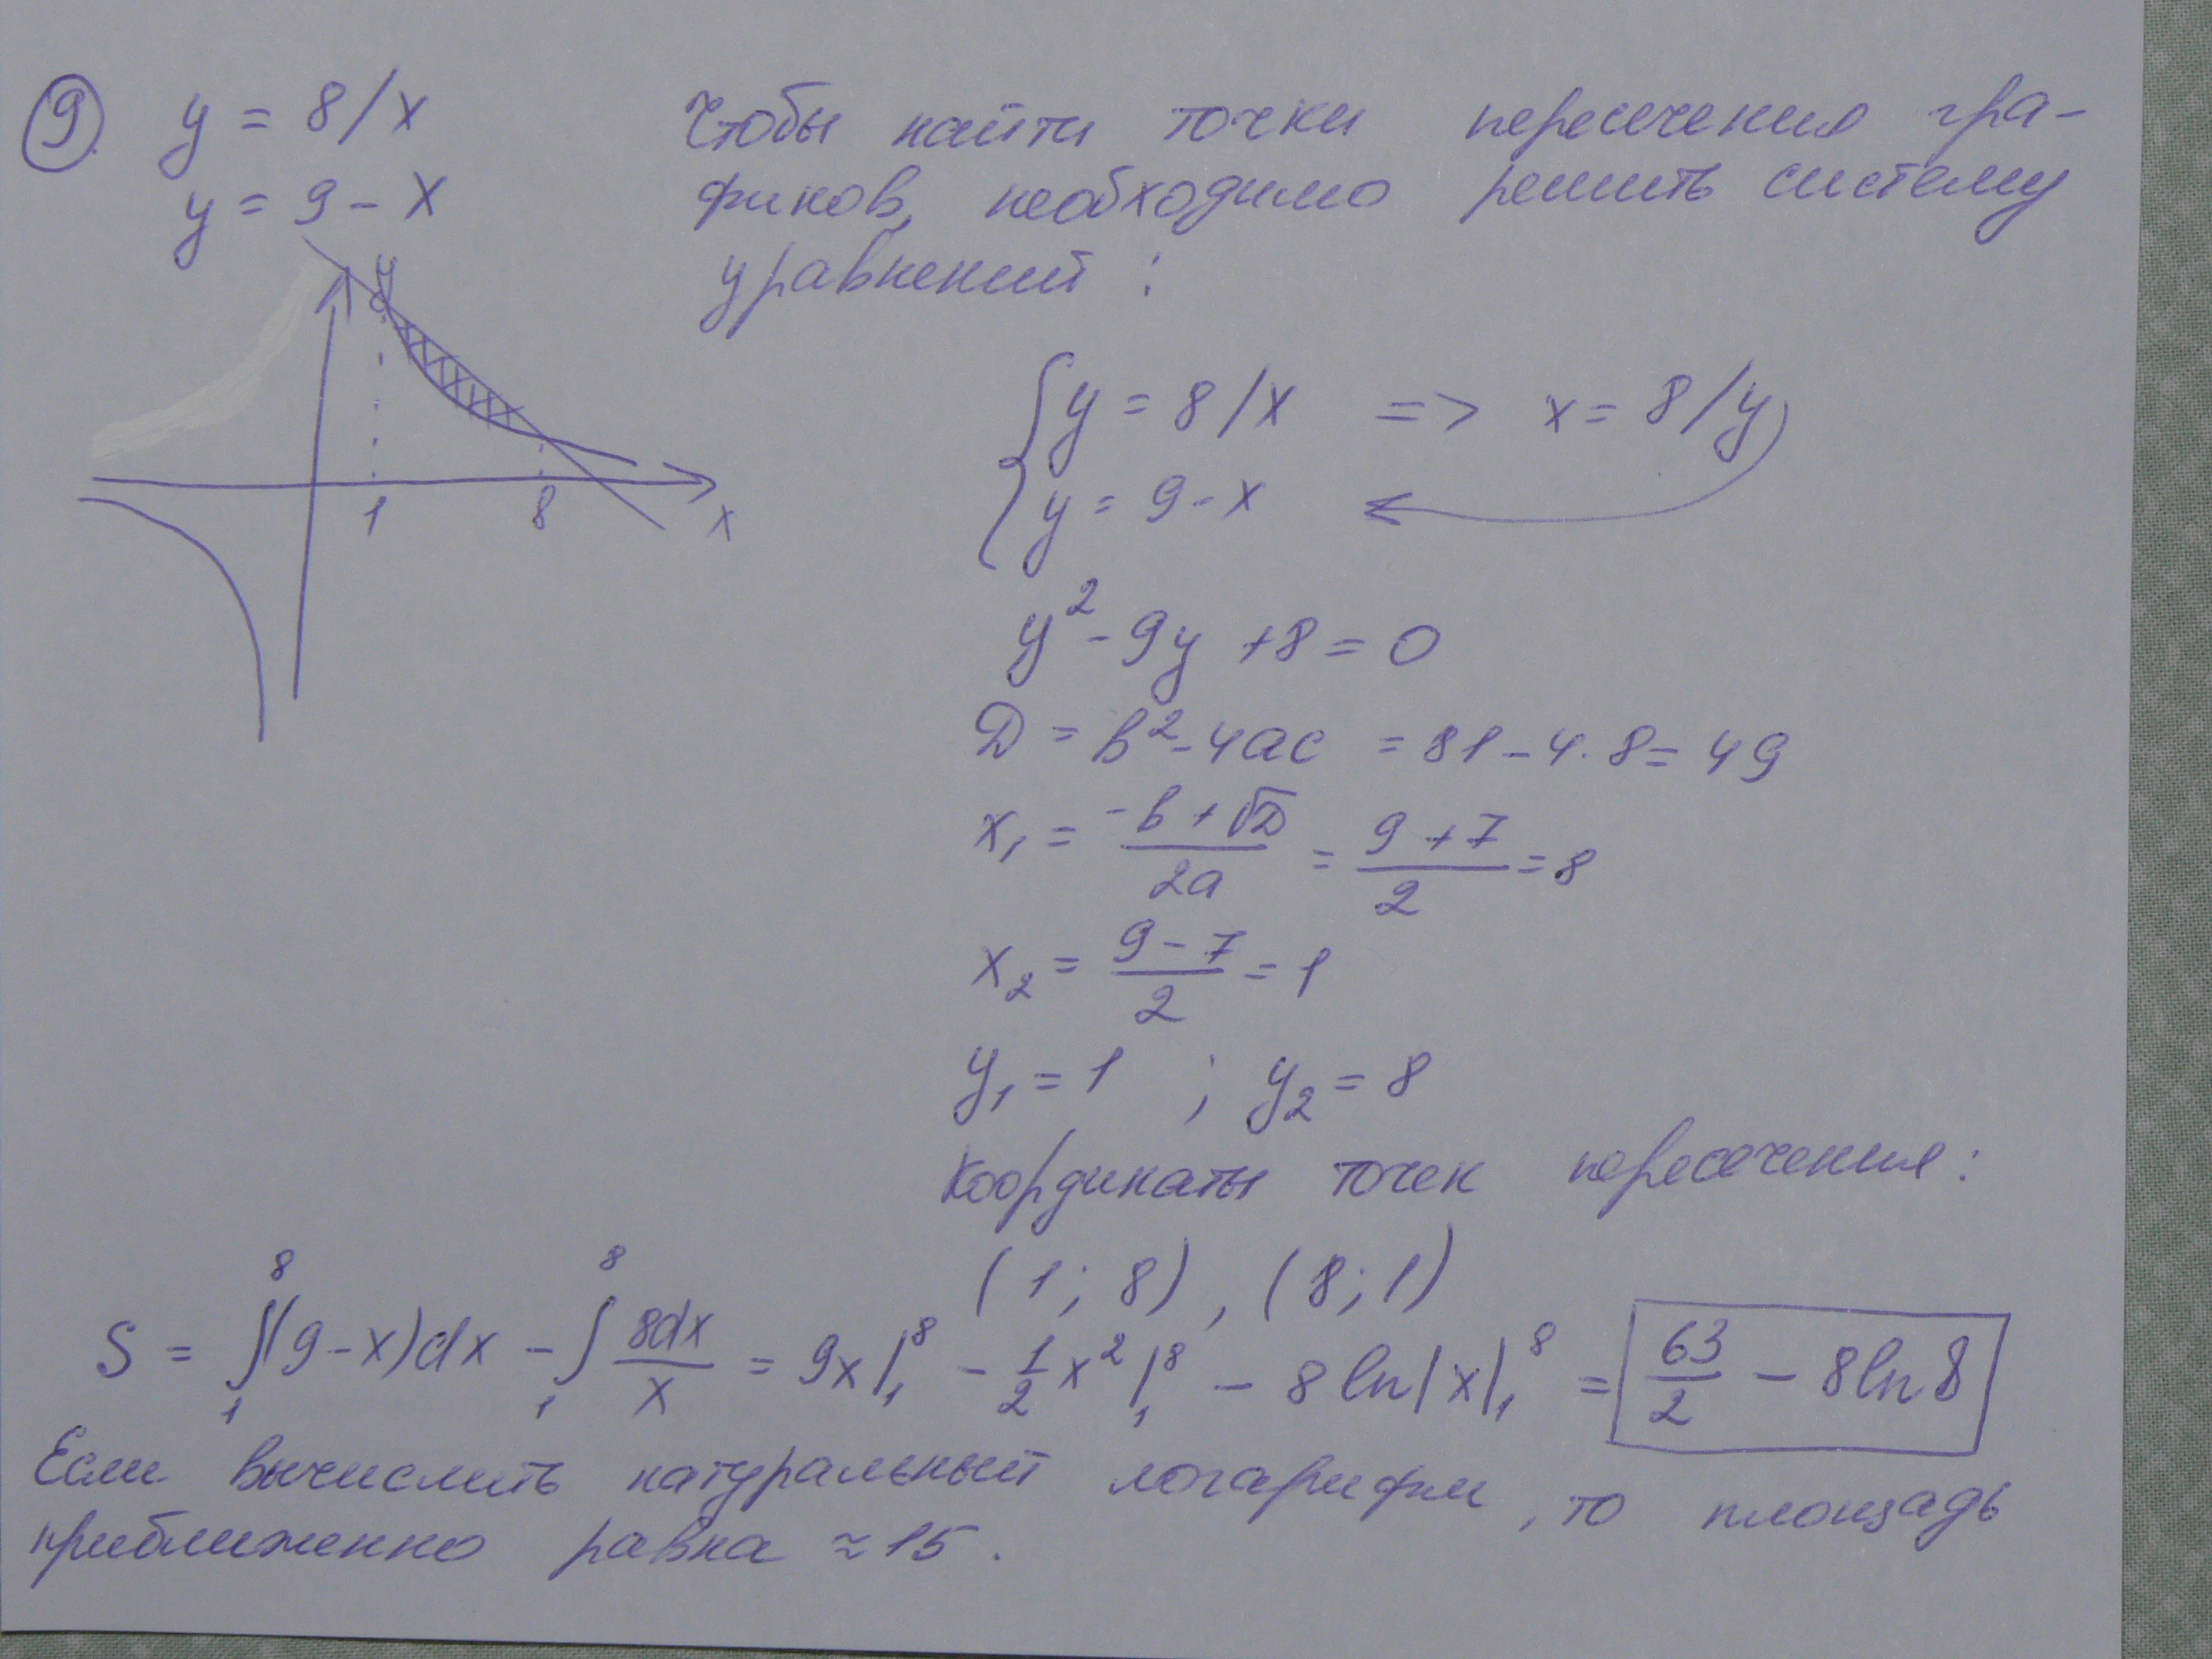 9. y = 8/x
y = 9 - x
Чтобы найти точки пересечения гра-
фиков, необходимо решить систему
уравнений :
y
1 8 x
{ y = 8/x => x = 8/y
y = 9 - x
y² - 9y + 8 = 0
D = b² - 4ac = 81 - 4·8 = 49
x₁ = (-b + √D)/2a = (9 + 7)/2 = 8
x₂ = (9 - 7)/2 = 1
y₁ = 1 ; y₂ = 8
Координаты точек пересечения:
(1; 8), (8; 1)
S = ∫₁⁸(9-x)dx - ∫₁⁸ 8dx/x = 9x|₁⁸ - 1/2 x²|₁⁸ - 8ln|x|₁⁸ = 63/2 - 8ln8
Если вычислить натуральный логарифм, то площадь
приближенно равна ≈ 15.